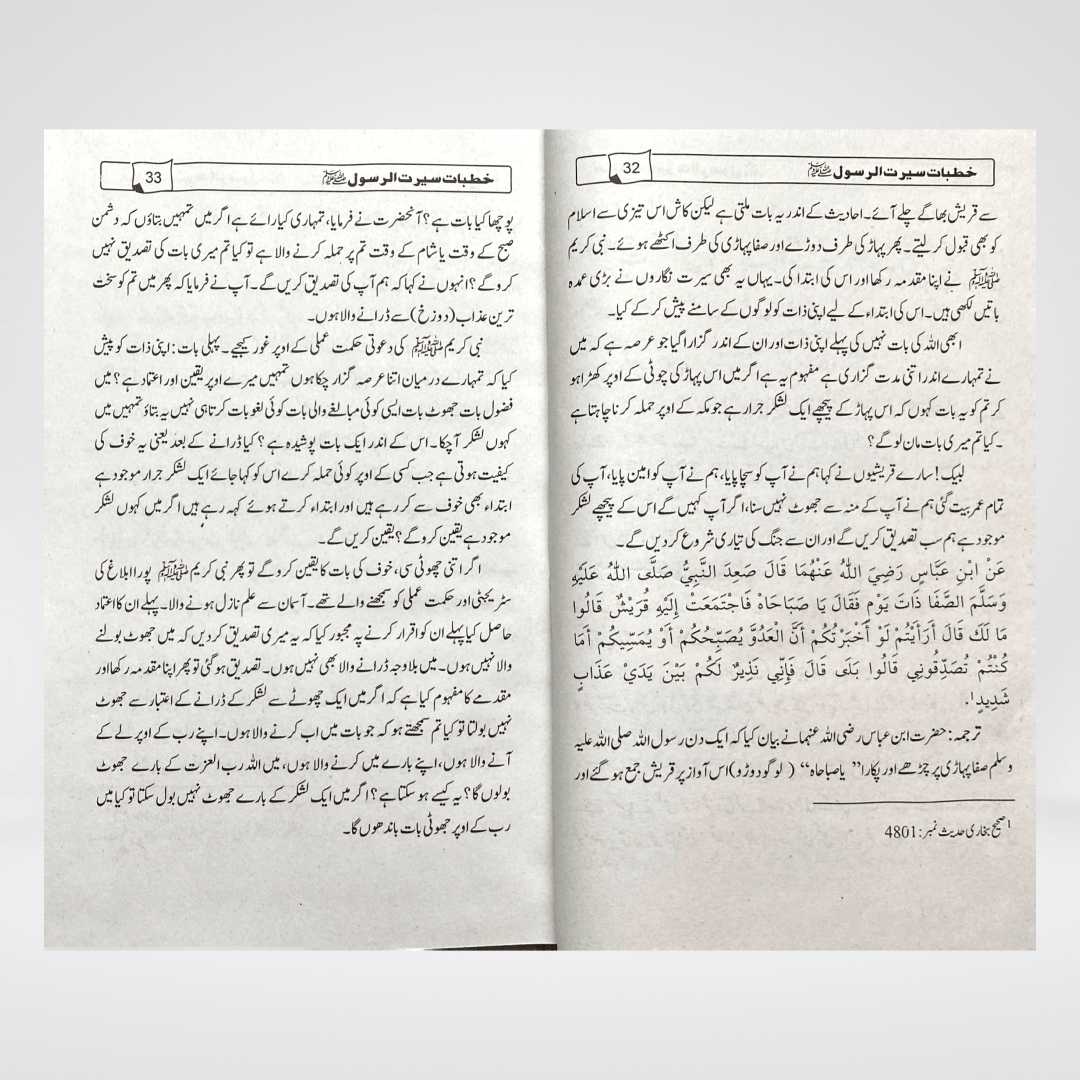 خطبات سیرت الرسول ﷺ 32
سے قریش بھاگے چلے آئے۔ احادیث کے اندر یہ بات ملتی ہے لیکن کاش اس تیزی سے اسلام
کو بھی قبول کر لیتے۔ پھر پہاڑ کی طرف دوڑے اور صفا پہاڑی کی طرف اکٹھے ہوئے۔ نبی کریم
ﷺ نے اپنا مقدمہ رکھا اور اس کی ابتدا کی۔ یہاں یہ بھی سیرت نگاروں نے بڑی عمدہ
باتیں لکھی ہیں۔ اس کی ابتداء کے لیے اپنی ذات کو لوگوں کے سامنے پیش کر کے کیا۔
ابھی اللہ کی بات نہیں کی پہلے اپنی ذات اور ان کے اندر گزارا گیا جو عرصہ ہے کہ میں
نے تمہارے اندر اتنی مدت گزاری ہے مفہوم یہ ہے اگر میں اس پہاڑ کی چوٹی کے اوپر کھڑا ہو
کر تم کو یہ بات کہوں کہ اس پہاڑ کے پیچھے ایک لشکر جرار ہے جو مکہ کے اوپر حملہ کرنا چاہتا ہے
۔ کیا تم میری بات مان لو گے؟
لبیک! سارے قریشیوں نے کہا ہم نے آپ کو سچا پایا، ہم نے آپ کو امین پایا، آپ کی
تمام عمر بیت گئی ہم نے آپ کے منہ سے جھوٹ نہیں سنا، اگر آپ کہیں گے اس کے پیچھے لشکر
موجود ہے ہم سب تصدیق کریں گے اور ان سے جنگ کی تیاری شروع کر دیں گے۔
عَنْ ابْنِ عَبَّاسٍ رَضِيَ اللَّهُ عَنْهُمَا قَالَ صَعِدَ النَّبِيُّ صَلَّى اللَّهُ عَلَيْهِ
وَسَلَّمَ الصَّفَا ذَاتَ يَوْمٍ فَقَالَ يَا صَبَاحَاهْ فَاجْتَمَعَتْ إِلَيْهِ قُرَيْشٌ قَالُوا
مَا لَكَ قَالَ أَرَأَيْتُمْ لَوْ أَخْبَرْتُكُمْ أَنَّ الْعَدُوَّ يُصَبِّحُكُمْ أَوْ يُمَسِّيكُمْ أَمَا
كُنْتُمْ تُصَدِّقُونِي قَالُوا بَلَى قَالَ فَإِنِّي نَذِيرٌ لَكُمْ بَيْنَ يَدَيْ عَذَابٍ
شَدِيدٍ¹.
ترجمہ: حضرت ابن عباس رضی اللہ عنہما نے بیان کیا کہ ایک دن رسول اللہ صلی اللہ علیہ
وسلم صفا پہاڑی پر چڑھے اور پکارا ”یا صباحاہ“ (لوگو دوڑو) اس آواز پر قریش جمع ہو گئے اور
¹ صحیح بخاری حدیث نمبر: 4801
خطبات سیرت الرسول ﷺ 33
پوچھا کیا بات ہے؟ آنحضرت نے فرمایا، تمہاری کیا رائے ہے اگر میں تمہیں بتاؤں کہ دشمن
صبح کے وقت یا شام کے وقت تم پر حملہ کرنے والا ہے تو کیا تم میری بات کی تصدیق نہیں
کرو گے؟ انہوں نے کہا کہ ہم آپ کی تصدیق کریں گے۔ آپ نے فرمایا کہ پھر میں تم کو سخت
ترین عذاب (دوزخ) سے ڈرانے والا ہوں۔
نبی کریم ﷺ کی دعوتی حکمت عملی کے اوپر غور کیجیے۔ پہلی بات: اپنی ذات کو پیش
کیا کہ تمہارے درمیان اتنا عرصہ گزار چکا ہوں تمہیں میرے اوپر یقین اور اعتماد ہے؟ میں
فضول بات جھوٹ بات ایسی کوئی مبالغے والی بات کوئی لغو بات کرتا ہی نہیں یہ بتاؤ تمہیں میں
کہوں لشکر آ چکا۔ اس کے اندر ایک بات پوشیدہ ہے؟ کیا ڈرانے کے بعد یعنی یہ خوف کی
کیفیت ہوتی ہے جب کسی کے اوپر کوئی حملہ کرے اس کو کہا جائے ایک لشکر جرار موجود ہے
ابتداء بھی خوف سے کر رہے ہیں اور ابتداء کرتے ہوئے کہہ رہے ہیں اگر میں کہوں لشکر
موجود ہے یقین کرو گے؟ یقین کریں گے۔
اگر اتنی چھوٹی سی، خوف کی بات کا یقین کرو گے تو پھر نبی کریم ﷺ پورا ابلاغ کی
سٹریجٹی اور حکمت عملی کو سمجھنے والے تھے۔ آسمان سے علم نازل ہونے والا۔ پہلے ان کا اعتماد
حاصل کیا پہلے ان کو اقرار کرنے پہ مجبور کیا کہ یہ میری تصدیق کر دیں کہ میں جھوٹ بولنے
والا نہیں ہوں۔ میں بلاوجہ ڈرانے والا بھی نہیں ہوں۔ تصدیق ہو گئی تو پھر اپنا مقدمہ رکھا اور
مقدمے کا مفہوم کیا ہے کہ اگر میں ایک چھوٹے سے لشکر کے ڈرانے کے اعتبار سے جھوٹ
نہیں بولتا تو کیا تم سمجھتے ہو کہ جو بات میں اب کرنے والا ہوں۔ اپنے رب کے اوپر لے کے
آنے والا ہوں، اپنے بارے میں کرنے والا ہوں، میں اللہ رب العزت کے بارے جھوٹ
بولوں گا؟ یہ کیسے ہو سکتا ہے؟ اگر میں ایک لشکر کے بارے جھوٹ نہیں بول سکتا تو کیا میں
رب کے اوپر جھوٹی بات باندھوں گا۔